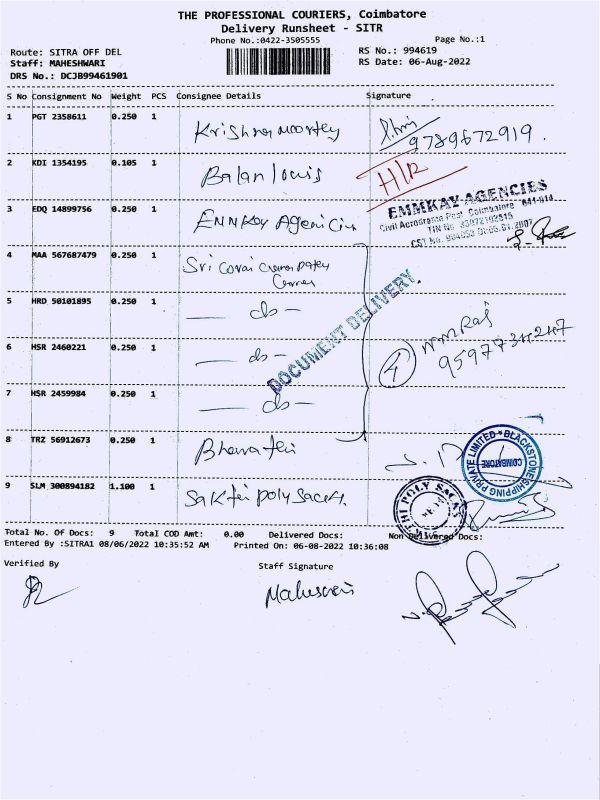 THE PROFESSIONAL COURIERS, Coimbatore
Delivery Runsheet - SITR
Phone No.:0422-3505555
Page No.:1
Route: SITRA OFF DEL
RS No.: 994619
Staff: MAHESHWARI
RS Date: 06-Aug-2022
DRS No.: DCJB99461901
S No Consignment No Weight PCS Consignee Details Signature
1 PGT 2358611 0.250 1 Krishnamoortey
9789672919.
2 KDI 1354195 0.105 1 Balan louis H/R
3 EDQ 14899756 0.250 1 EMMKay Agencies
EMMKAY AGENCIES
Civil Aerodrome Post, Coimbatore - 641 014
4 MAA 567687479 0.250 1 Sri
DOCUMENT DELIVERY.
5 HRD 50101895 0.250 1 — do —
6 HSR 2460221 0.250 1 — do —
4
7 HSR 2459984 0.250 1 — do —
8 TRZ 56912673 0.250 1
BLACKSTONE SHIPPING PRIVATE LIMITED
COIMBATORE
9 SLM 300894182 1.100 1 Sakthi poly sacks.
Total No. Of Docs: 9 Total COD Amt: 0.00 Delivered Docs: Non Delivered Docs:
Entered By :SITRA1 08/06/2022 10:35:52 AM Printed On: 06-08-2022 10:36:08
Verified By Staff Signature